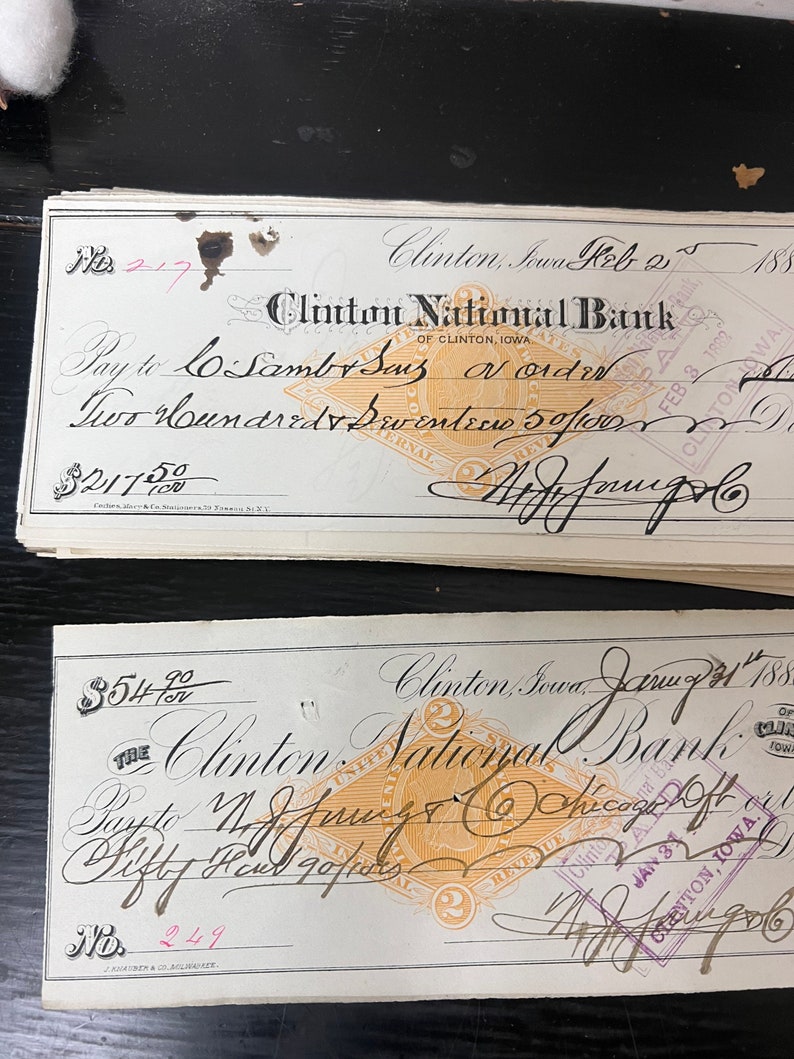 No. 217
Clinton, Iowa Feb 2nd 188
Clinton National Bank
OF CLINTON, IOWA.
Pay to C Lamb & Sons or order
Two Hundred & Seventeen 50/100
$217 50/100
W. J. Young & Co
Corlies, Macy & Co. Stationers, 39 Nassau St. N.Y.
UNITED STATES
INTERNAL REVENUE
2
2
PAID
FEB 3 1882
CLINTON, IOWA.
$54 90/100
Clinton, Iowa, Januy 31st 188
THE Clinton National Bank
OF
CLIN
IOWA
Pay to W. J. Young & Co Chicago Dft or
Fifty Four 90/100
No. 249
W. J. Young & Co
J. KNAUBER & CO. MILWAUKEE.
2
UNITED STATES
INTERNAL REVENUE
2
Clinton National Bank
PAID
JAN 31
CLINTON, IOWA.